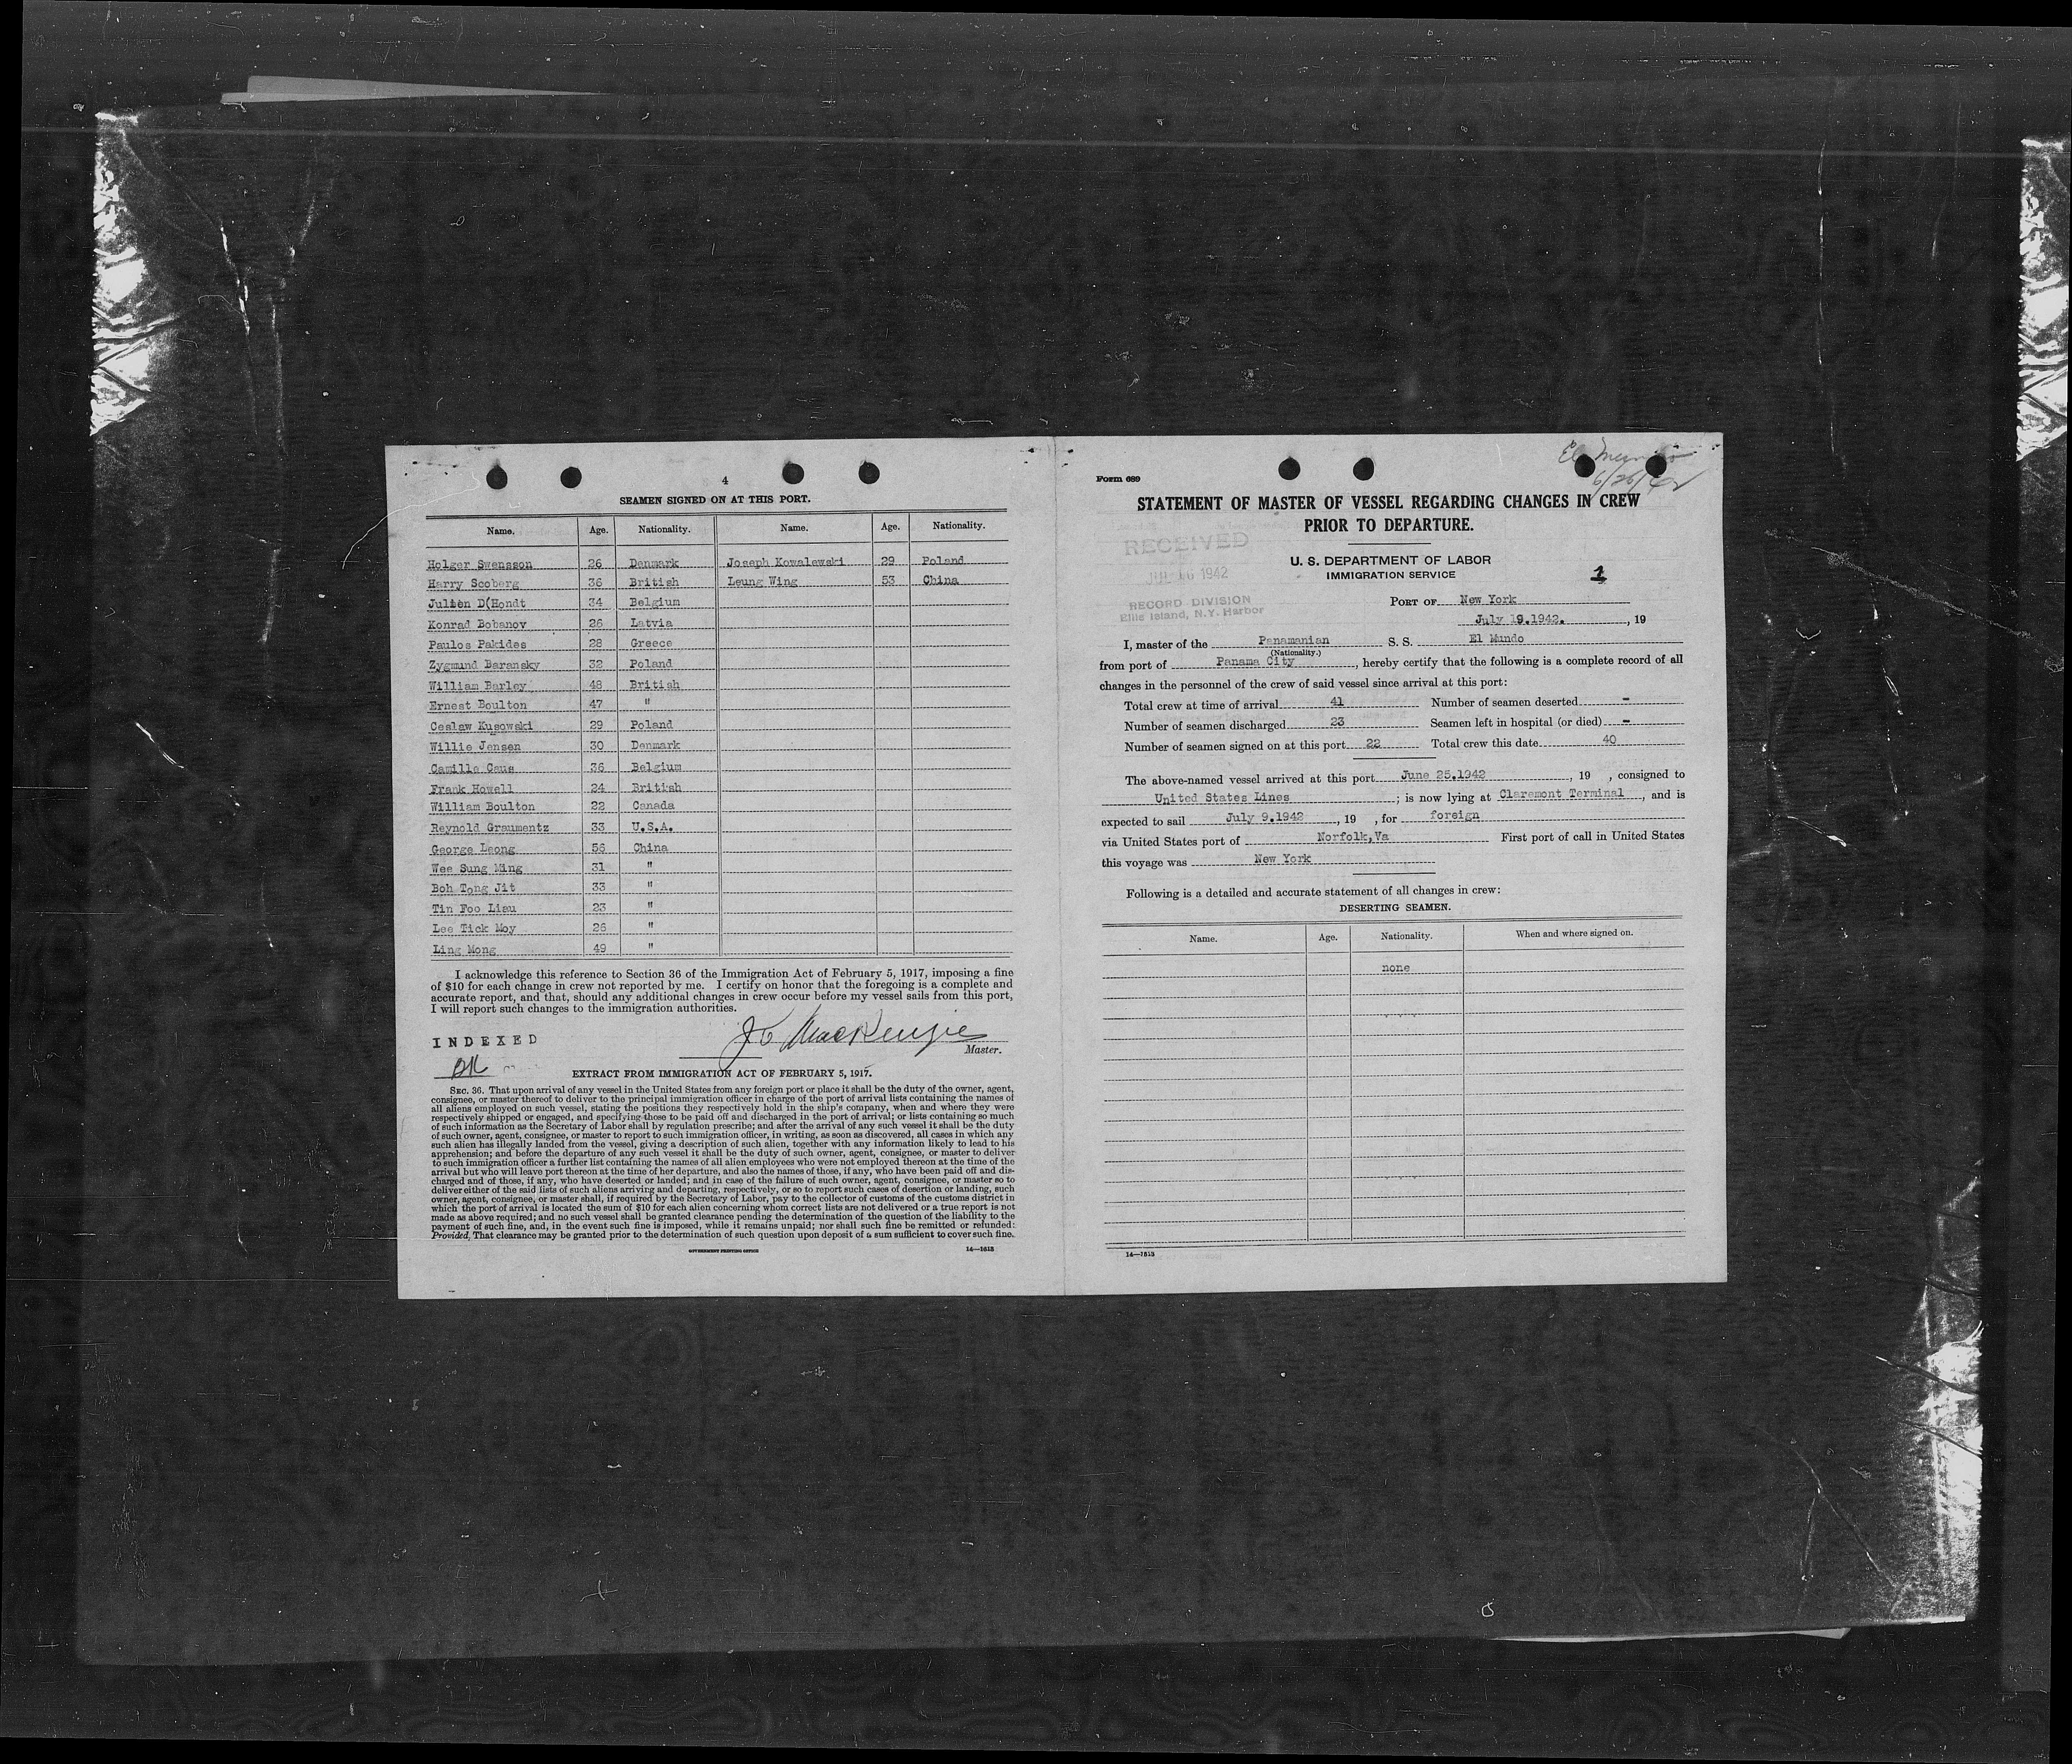 4
SEAMEN SIGNED ON AT THIS PORT.
Name. Age. Nationality. Name. Age. Nationality.
Holger Swensson 26 Denmark Joseph Kowalewski 29 Poland
Harry Scoberg 36 British Leung Wing 53 China
Julien D(Hondt 34 Belgium
Konrad Bobanov 26 Latvia
Paulos Pakides 28 Greece
Zygmund Baransky 32 Poland
William Barley 48 British
Ernest Boulton 47 "
Ceslaw Kusowski 29 Poland
Willie Jensen 30 Denmark
Camille Caus 36 Belgium
Frank Howell 24 British
William Boulton 22 Canada
Reynold Graumentz 33 U.S.A.
George Leong 56 China
Wee Sung Ming 31 "
Boh Tong Jit 33 "
Tin Foo Liau 23 "
Lee Tick Moy 26 "
Ling Mong 49 "
I acknowledge this reference to Section 36 of the Immigration Act of February 5, 1917, imposing a fine
of $10 for each change in crew not reported by me. I certify on honor that the foregoing is a complete and
accurate report, and that, should any additional changes in crew occur before my vessel sails from this port,
I will report such changes to the immigration authorities.
INDEXED
MacKenzie
Master.
EXTRACT FROM IMMIGRATION ACT OF FEBRUARY 5, 1917.
SEC. 36. That upon arrival of any vessel in the United States from any foreign port or place it shall be the duty of the owner, agent,
consignee, or master thereof to deliver to the principal immigration officer in charge of the port of arrival lists containing the names of
all aliens employed on such vessel, stating the positions they respectively hold in the ship's company, when and where they were
respectively shipped or engaged, and specifying those to be paid off and discharged in the port of arrival; or lists containing so much
of such information as the Secretary of Labor shall by regulation prescribe; and after the arrival of any such vessel it shall be the duty
of such owner, agent, consignee, or master to report to such immigration officer, in writing, as soon as discovered, all cases in which any
such alien has illegally landed from the vessel, giving a description of such alien, together with any information likely to lead to his
apprehension; and before the departure of any such vessel it shall be the duty of such owner, agent, consignee, or master to deliver
to such immigration officer a further list containing the names of all alien employees who were not employed thereon at the time of the
arrival but who will leave port thereon at the time of her departure, and also the names of those, if any, who have been paid off and dis-
charged and of those, if any, who have deserted or landed; and in case of the failure of such owner, agent, consignee, or master so to
deliver either of the said lists of such aliens arriving and departing, respectively, or so to report such cases of desertion or landing, such
owner, agent, consignee, or master shall, if required by the Secretary of Labor, pay to the collector of customs of the customs district in
which the port of arrival is located the sum of $10 for each alien concerning whom correct lists are not delivered or a true report is not
made as above required; and no such vessel shall be granted clearance pending the determination of the question of the liability to the
payment of such fine, and, in the event such fine is imposed, while it remains unpaid; nor shall such fine be remitted or refunded:
Provided, That clearance may be granted prior to the determination of such question upon deposit of a sum sufficient to cover such fine.
GOVERNMENT PRINTING OFFICE 14—1613
El Mundo
6/26/42
Form 689
STATEMENT OF MASTER OF VESSEL REGARDING CHANGES IN CREW
PRIOR TO DEPARTURE.
RECEIVED
1942
RECORD DIVISION
Ellis Island, N.Y. Harbor
U. S. DEPARTMENT OF LABOR
IMMIGRATION SERVICE
1
PORT OF New York
July 19.1942. , 19
I, master of the Panamanian S. S. El Mundo
(Nationality.)
from port of Panama City, hereby certify that the following is a complete record of all
changes in the personnel of the crew of said vessel since arrival at this port:
Total crew at time of arrival 41 Number of seamen deserted -
Number of seamen discharged 23 Seamen left in hospital (or died) -
Number of seamen signed on at this port 22 Total crew this date 40
The above-named vessel arrived at this port June 25.1942 , 19 , consigned to
United States Lines ; is now lying at Claremont Terminal , and is
expected to sail July 9.1942 , 19 , for foreign
via United States port of Norfolk,Va First port of call in United States
this voyage was New York
Following is a detailed and accurate statement of all changes in crew:
DESERTING SEAMEN.
Name. Age. Nationality. When and where signed on.
none
14—1613